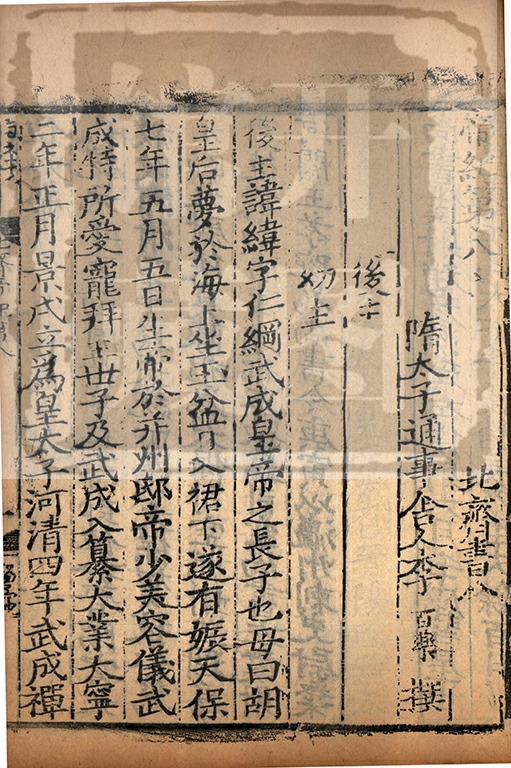 帝紀第八　北齊書八
隋太子通事舍人李百藥撰
後主
幼主
後主諱緯字仁綱武成皇帝之長子也母曰胡
皇后夢於海上坐玉盆日入裙下遂有娠天保
七年五月五日生帝於并州邸帝少美容儀武
成特所愛寵拜王世子及武成入纂大業大寧
二年正月景戌立為皇太子河清四年武成禪